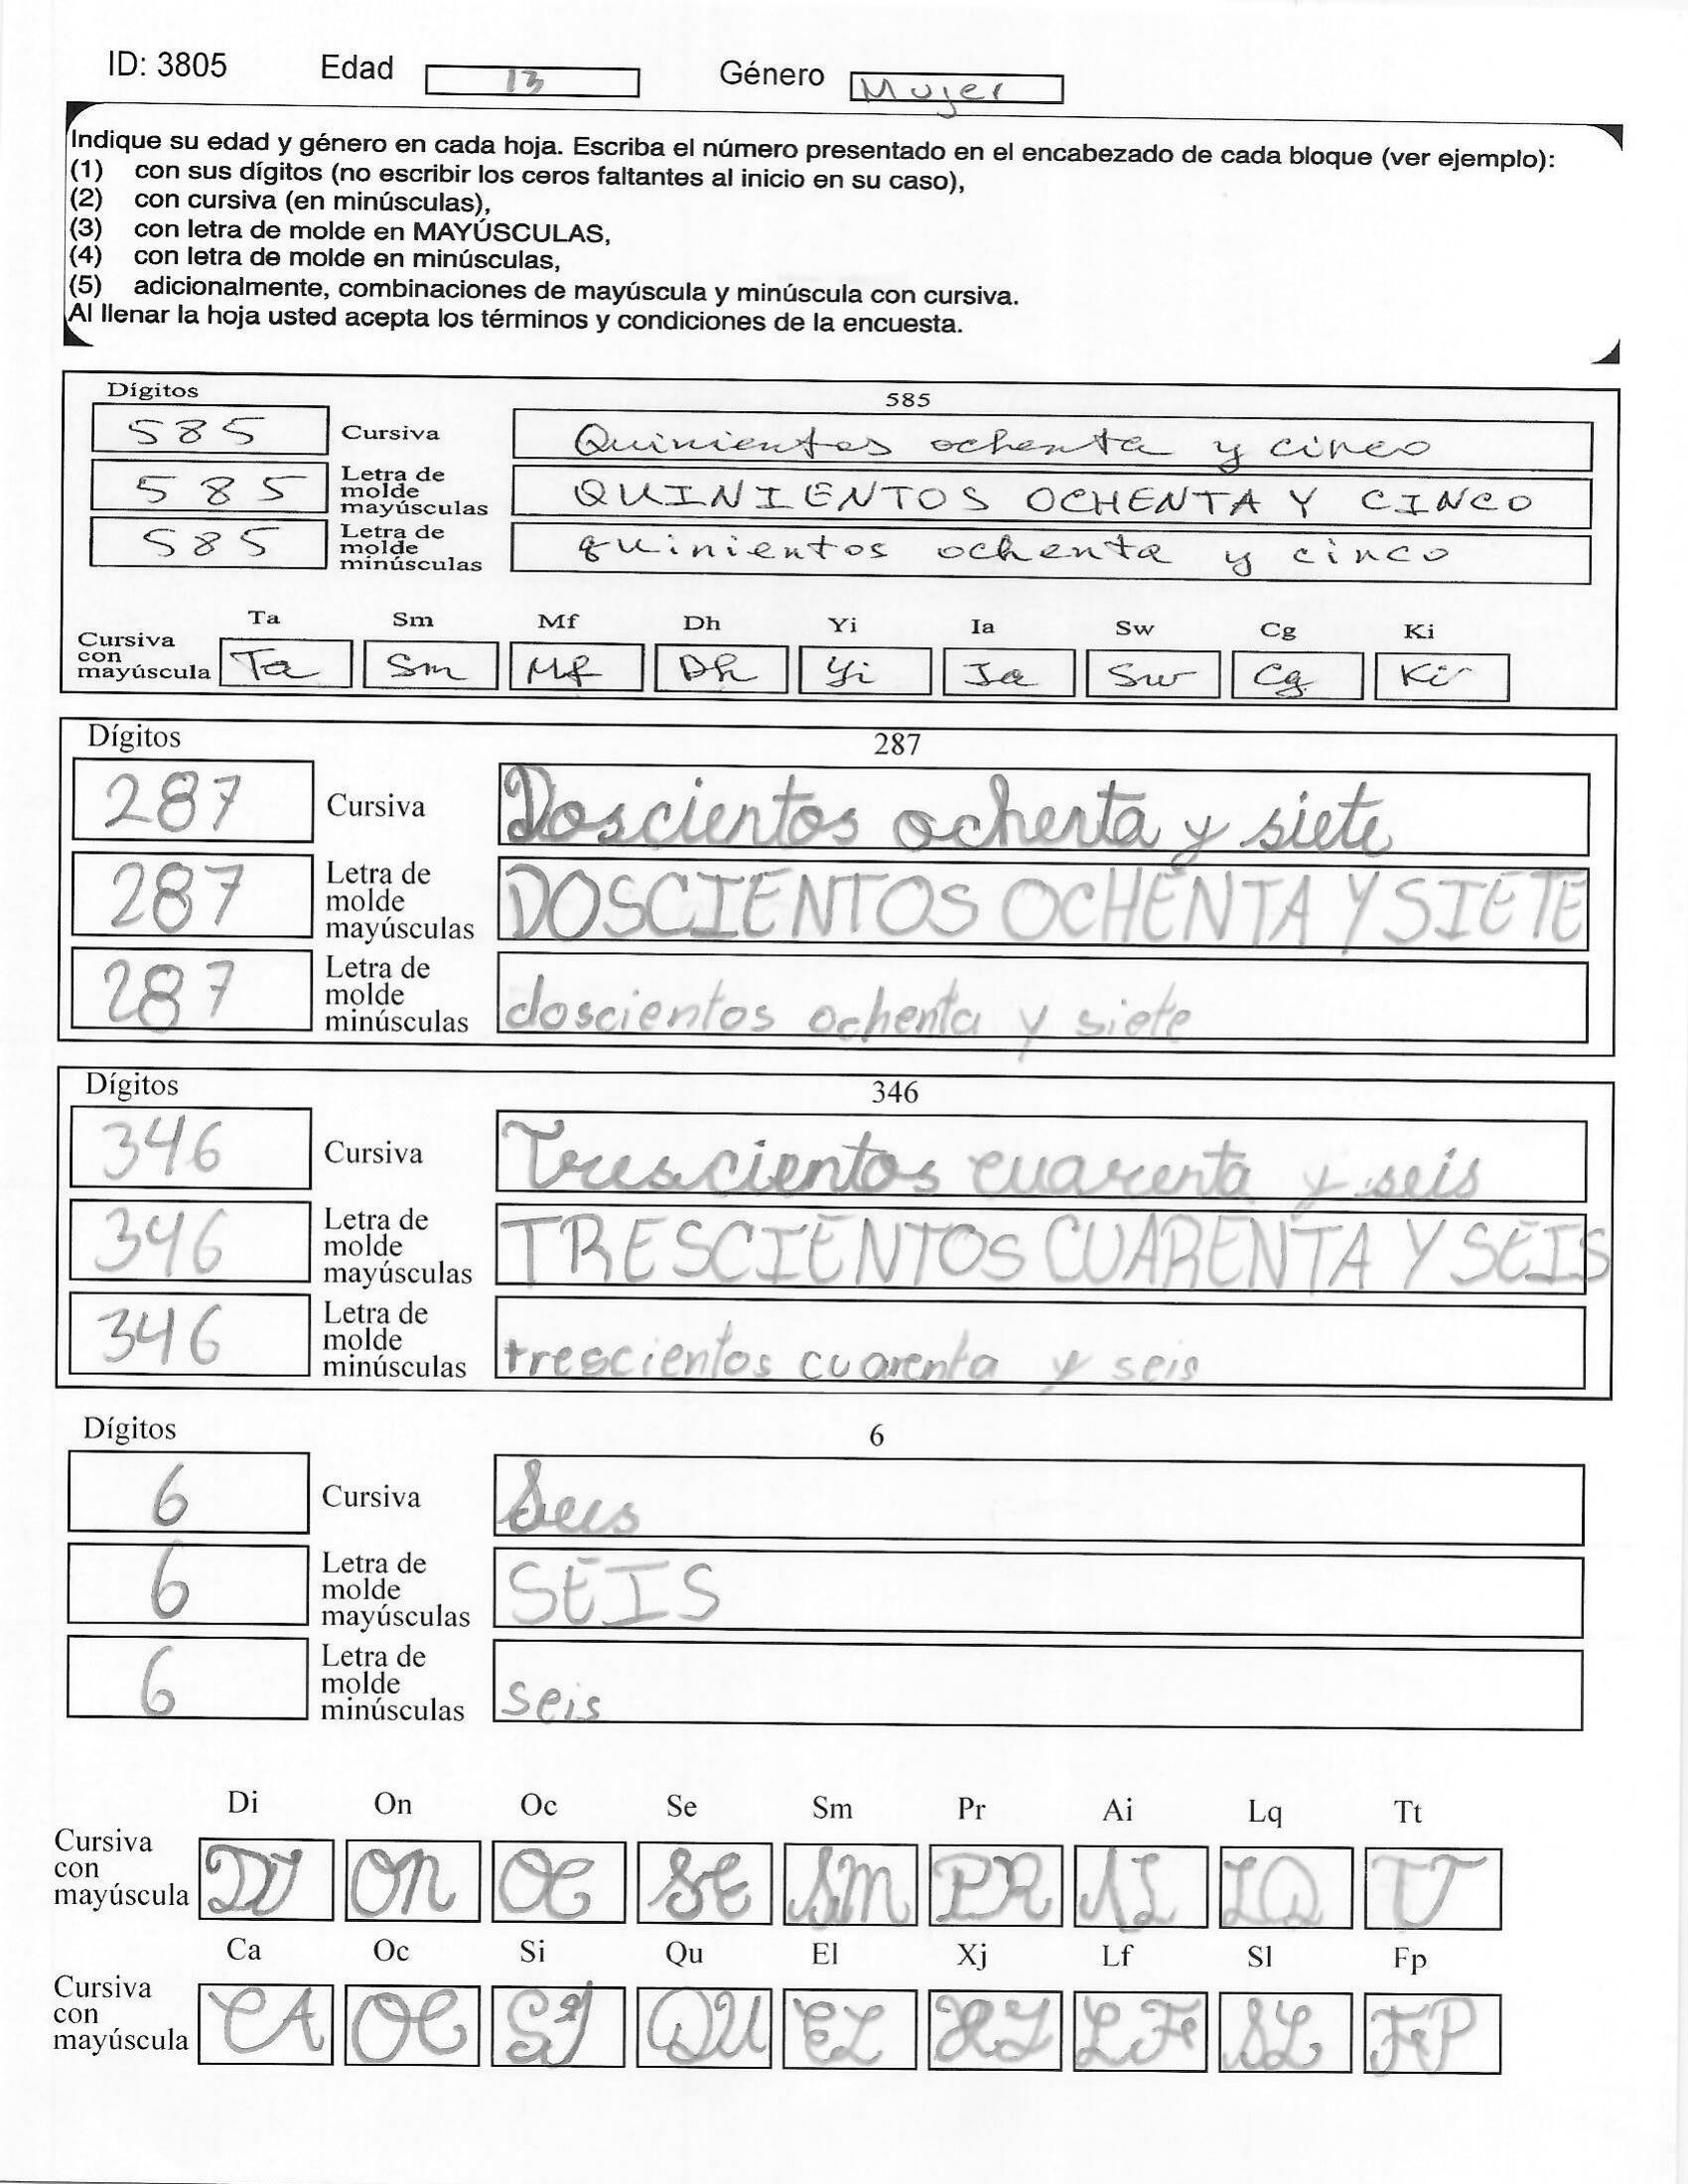 ID: 3805 Edad 13 Género Mujer
Indique su edad y género en cada hoja. Escriba el número presentado en el encabezado de cada bloque (ver ejemplo):
(1) con sus dígitos (no escribir los ceros faltantes al inicio en su caso),
(2) con cursiva (en minúsculas),
(3) con letra de molde en MAYÚSCULAS,
(4) con letra de molde en minúsculas,
(5) adicionalmente, combinaciones de mayúscula y minúscula con cursiva.
Al llenar la hoja usted acepta los términos y condiciones de la encuesta.
Dígitos 585
585 Cursiva Quinientos ochenta y cinco
585 Letra de molde mayúsculas QUINIENTOS OCHENTA Y CINCO
585 Letra de molde minúsculas quinientos ochenta y cinco
Ta Sm Mf Dh Yi Ia Sw Cg Ki
Cursiva con mayúscula Ta Sm Mf Dh Yi Ia Sw Cg Ki
Dígitos 287
287 Cursiva Doscientos ochenta y siete
287 Letra de molde mayúsculas DOSCIENTOS OCHENTA Y SIETE
287 Letra de molde minúsculas doscientos ochenta y siete
Dígitos 346
346 Cursiva Trescientos cuarenta y seis
346 Letra de molde mayúsculas TRESCIENTOS CUARENTA Y SEIS
346 Letra de molde minúsculas trescientos cuarenta y seis
Dígitos 6
6 Cursiva Seis
6 Letra de molde mayúsculas SEIS
6 Letra de molde minúsculas seis
Di On Oc Se Sm Pr Ai Lq Tt
Cursiva con mayúscula DI ON OC SE SM PR AI LQ TT
Ca Oc Si Qu El Xj Lf Sl Fp
Cursiva con mayúscula CA OC SI QU EL XJ LF SL FP